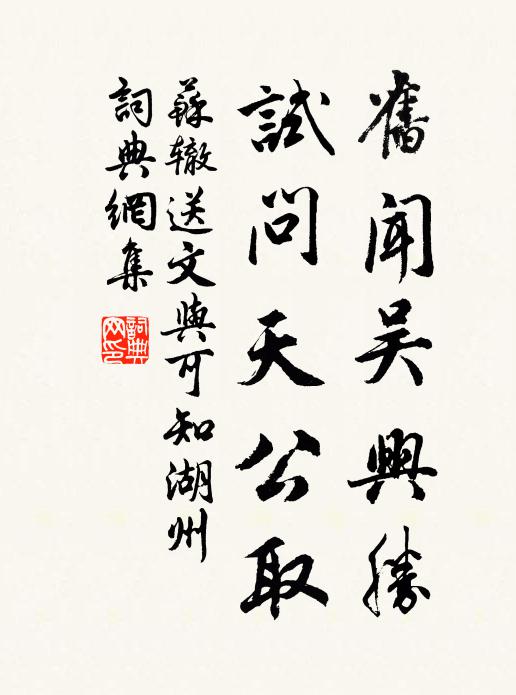 舊聞吳興勝
試問天公取
蘇辙送文與可知湖州
詞典網集
詞典网印